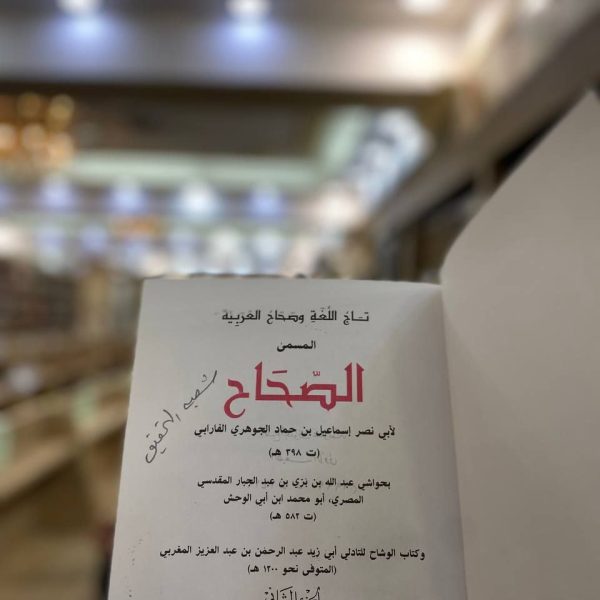 تاج اللُّغَةِ وصحاح العَرَبِيّة
المسمى
الصّحَاح
لأبي نصر إسماعيل بن حماد الجوهري الفارابي
(ت ٣٩٨ هـ)
بحواشي عبد الله بن بَرّي بن عبد الجبار المقدسي
المصري، أبو محمد ابن أبي الوحش
(ت ٥٨٢ هـ)
وكتاب الوشاح للتادلي أبي زيد عبد الرحمن بن عبد العزيز المغربي
(المتوفى نحو ١٢٠٠ هـ)
الجزء الثاني
شعبة التحقيق